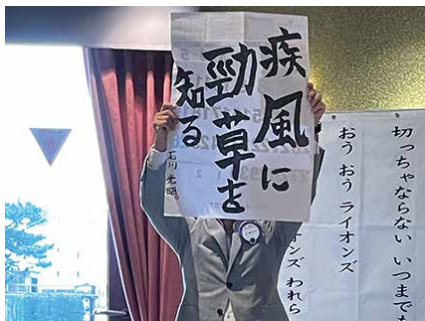 疾風に
勁草を
知る
石川 光昭
切っちゃならない いつまでも
おう おう ライオンズ
ンズ われら